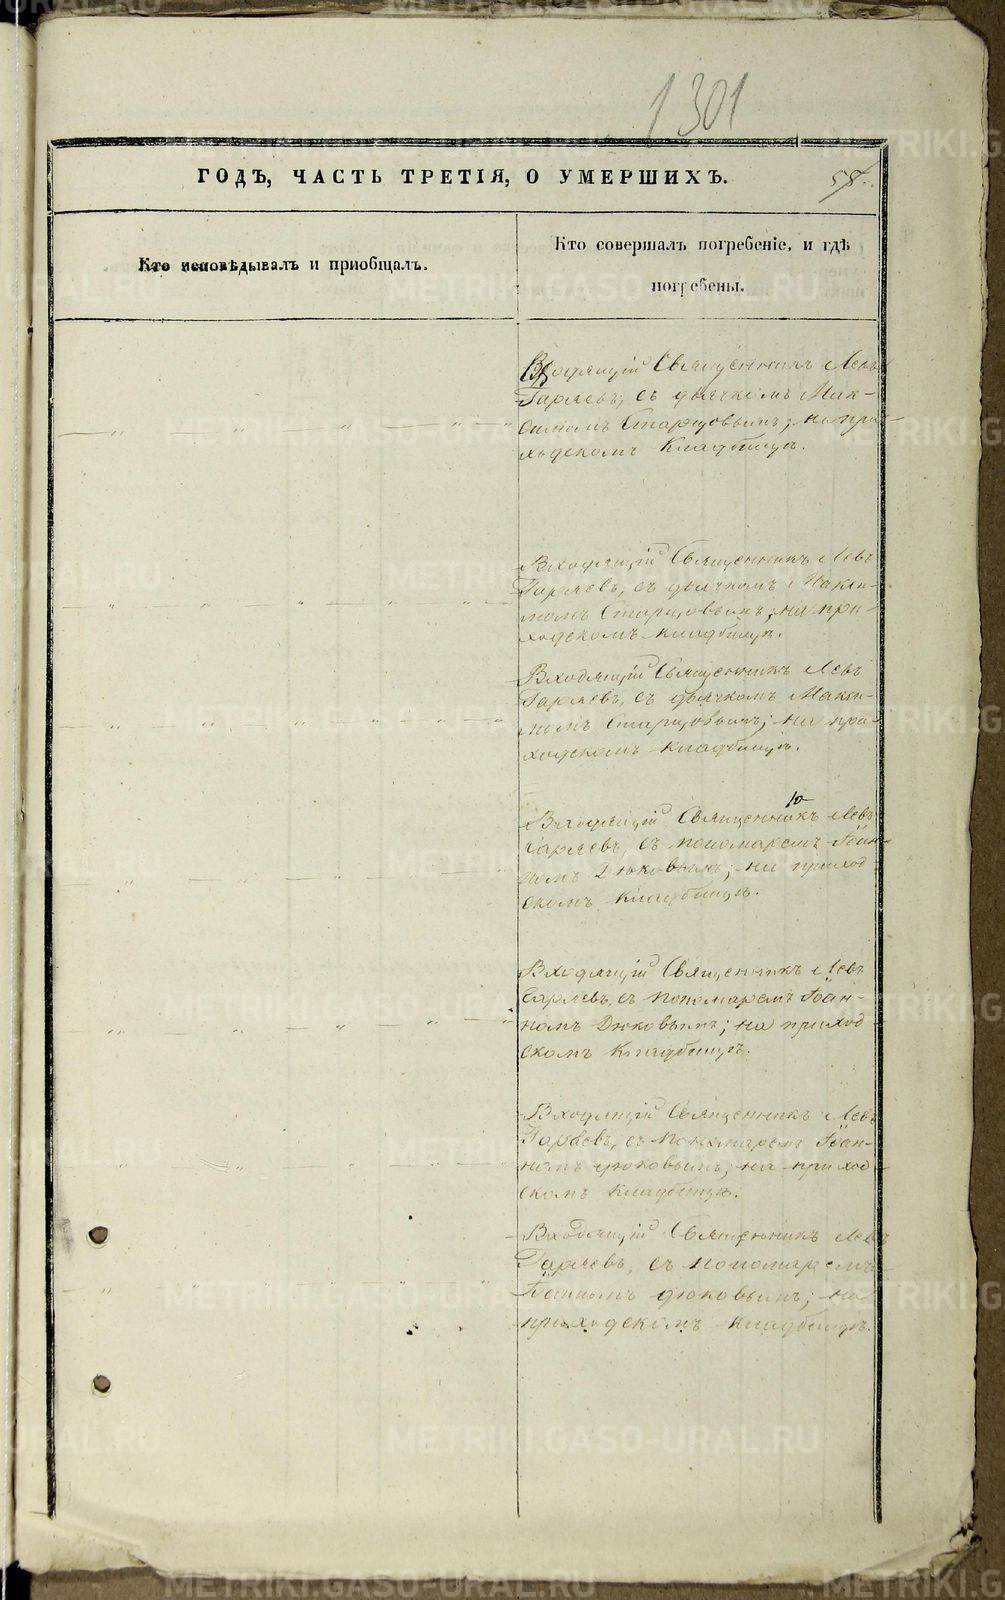 1301
ГОДЪ, ЧАСТЬ ТРЕТІЯ, О УМЕРШИХЪ.
58
Кто исповѣдывалъ и пріобщалъ.
Кто совершалъ погребеніе, и гдѣ
погребены.
Входящій Священникъ Левъ
Гаряевъ, съ дьячкомъ Мак-
симомъ Старцовымъ; на при-
ходскомъ кладбищѣ.
Входящій Священникъ Левъ
Гаряевъ, съ дьячкомъ Макси-
момъ Старцовымъ, на при-
ходскомъ кладбищѣ.
Входящій Священникъ Левъ
Гаряевъ, съ дьячкомъ Макси-
момъ Старцовымъ; на при-
ходскомъ кладбищѣ.
10
Входящій Священникъ Левъ
Гаряевъ, съ пономаремъ Іоан-
номъ Дюковымъ; на приход
скомъ кладбищѣ.
Входящій Священникъ Левъ
Гаряевъ, съ пономаремъ Іоан-
номъ Дюковымъ; на приход
скомъ кладбищѣ.
Входящій Священникъ Левъ
Гаряевъ, съ пономаремъ Іоан-
номъ Дюковымъ; на приход-
скомъ кладбищѣ.
Входящій Священникъ Левъ
Гаряевъ, съ пономаремъ
Іоанномъ Дюковымъ; на
приходскомъ кладбищѣ.
METRIKI.GASO-URAL.RU